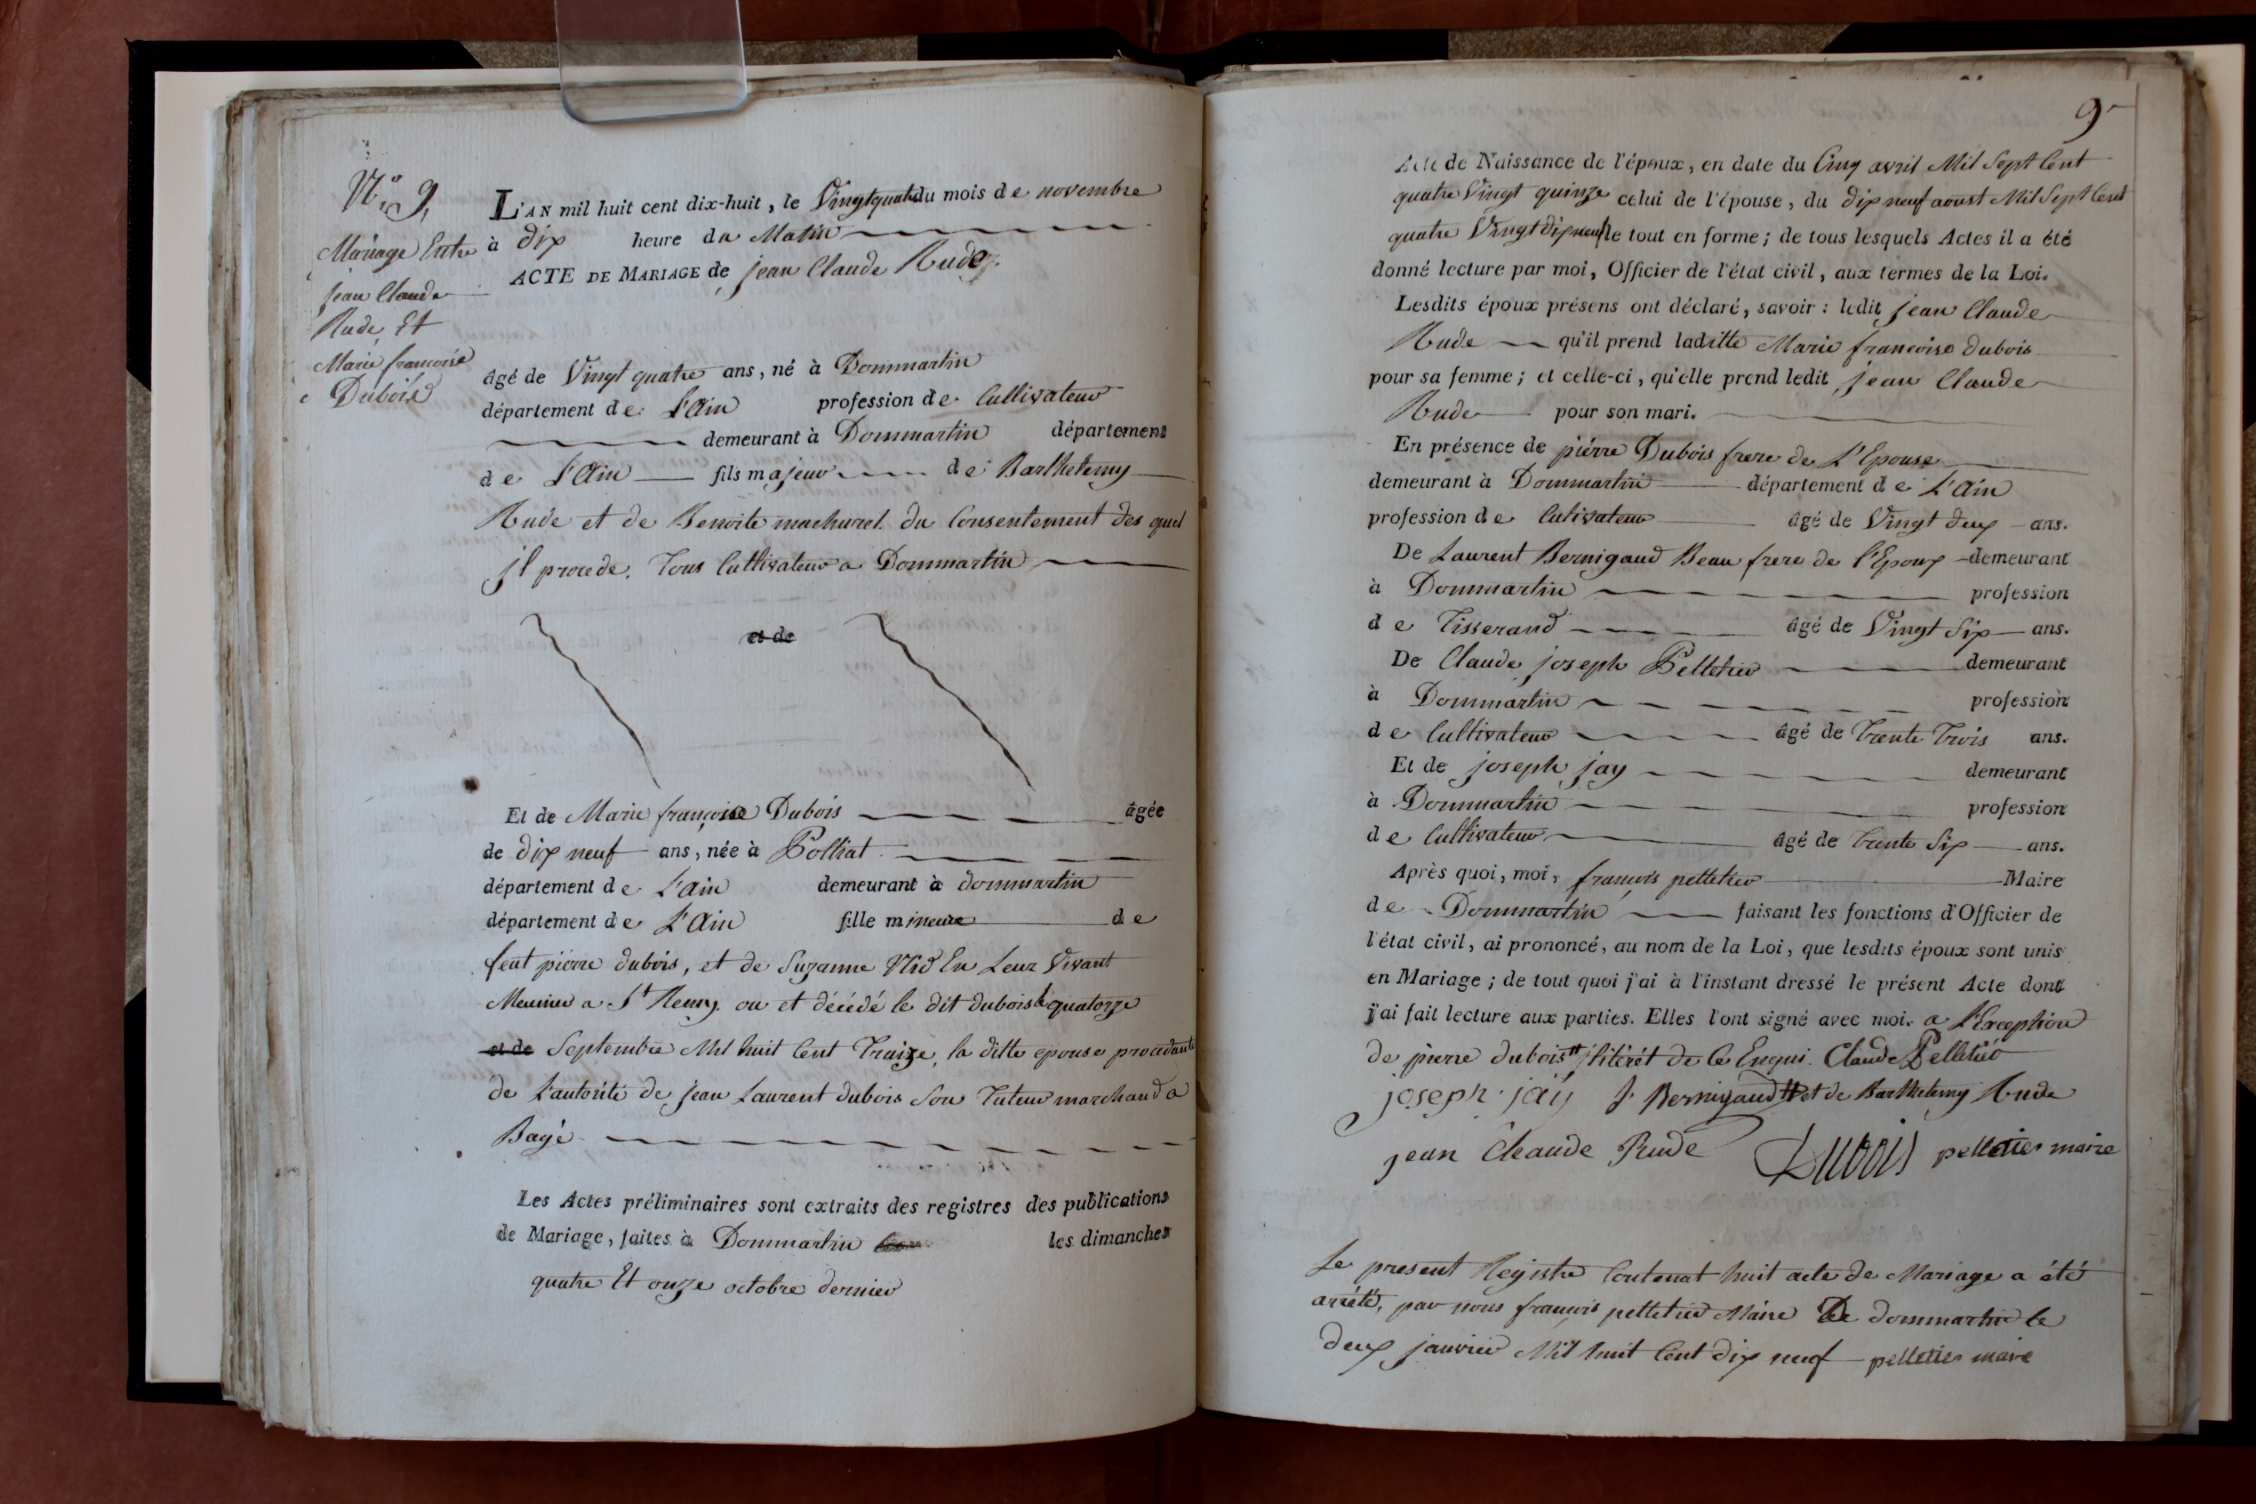 N.° 9,
Mariage Entre
jean Claude
Rude, Et
Marie francoise
Dubois
L'AN mil huit cent dix-huit, le Vingtquatre du mois de novembre
à dix heure du Matin
ACTE DE MARIAGE de jean Claude Rude
âgé de Vingt quatre ans, né à Dommartin
département de L'Ain profession de Cultivateur
demeurant à Dommartin département
de L'Ain fils majeur de Barthelemy
Rude et de Benoite machuret du Consentement des quel
jl procede. Tous Cultivateur a Dommartin
et de
Et de Marie françoise Dubois âgée
de dix neuf ans, née à Polliat
département de L'ain demeurant à dommartin
département de L'Ain fille mineure de
feut pierre dubois, et de Suzanne Nid En Leur Vivant
Meunier a St Remy. ou et décédé le dit dubois le quatorze
et de Septembre Mil huit Cent Traize, la ditte epouse procedante
de L'autorité de jean Laurent dubois Son Tuteur marchand a
Bagé
Les Actes préliminaires sont extraits des registres des publications
de Mariage, faites à Dommartin les dimanches
quatre Et onze octobre dernier
9
Acte de Naissance de l'époux, en date du Cinq avril Mil Sept Cent
quatre Vingt quinze celui de l'épouse, du dix neuf aoust Mil Sept Cent
quatre Vingt dix neuf le tout en forme; de tous lesquels Actes il a été
donné lecture par moi, Officier de l'état civil, aux termes de la Loi.
Lesdits époux présens ont déclaré, savoir : ledit jean Claude
Rude qu'il prend laditte Marie françoise dubois
pour sa femme; et celle-ci, qu'elle prend ledit jean Claude
Rude pour son mari.
En présence de piérre Dubois frere de L'Epouse
demeurant à Dommartin département de L'Ain
profession de Cutivateur âgé de Vingt deux ans.
De Laurent Bernigaud Beau frere de l'Epoux demeurant
à Dommartin profession
de Tisserand âgé de Vingt Six ans.
De Claude joseph Pelletier demeurant
à Dommartin profession
de Cultivateur âgé de Trente Trois ans.
Et de joseph jay demeurant
à Dommartin profession
de Cultivateur âgé de Trente Six ans.
Après quoi, moi, françois pelletier Maire
de Dommartin faisant les fonctions d'Officier de
l'état civil, ai prononcé, au nom de la Loi, que lesdits époux sont unis
en Mariage; de tout quoi j'ai à l'instant dressé le présent Acte dont
j'ai fait lecture aux parties. Elles l'ont signé avec moi. a L'Exception
de pierre dubois # jlitérét de Ce Enqui. Claude Pelletier
joseph jay J. Bernigaud # et de Barthelemy Rude
jean Claude Rude Dubois pelletier maire
Le present Registre Contenat huit acte de Mariage a été
arrété, par nous françois pelletier Maire De dommartin le
deux janvier Mil huit Cent dix neuf pelletier maire